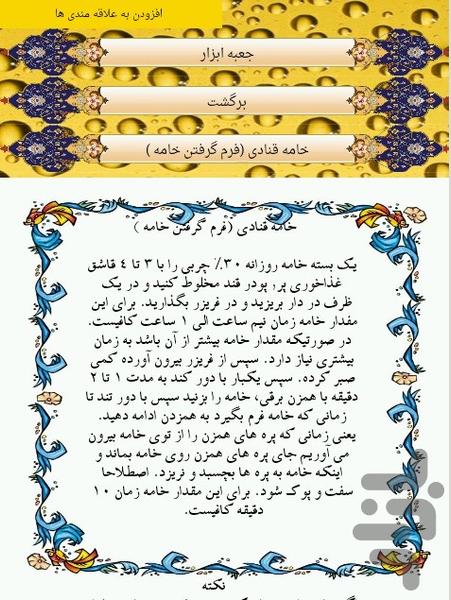 افزودن به علاقه مندی ها
جعبه ابزار
برگشت
خامه قنادی (فرم گرفتن خامه )
خامه قنادی (فرم گرفتن خامه )
یک بسته خامه روزانه ۳۰٪ چربی را با ۳ تا ٤ قاشق
غذاخوری پر, پودر قند مخلوط کنید و در یک
ظرف در دار بریزید و در فریزر بگذارید. برای این
مقدار خامه زمان نیم ساعت الی ۱ ساعت کافیست.
در صورتیکه مقدار خامه بیشتر از آن باشد به زمان
بیشتری نیاز دارد. سپس از فریزر بیرون آورده کمی
صبر کرده. سپس یکبار با دور کند به مدت ۱ تا ۲
دقیقه با همزن برقی، خامه را بزنید سپس با دور تند تا
زمانی که خامه فرم بگیرد به همزدن ادامه دهید.
یعنی زمانی که پره های همزن را از توی خامه بیرون
می آوریم جای پره های همزن روی خامه بماند و
اینکه خامه به پره ها بچسبد و نریزد. اصطلاحا
سفت و پوک شود. برای این مقدار خامه زمان ۱۰
دقیقه کافیست.
نکته